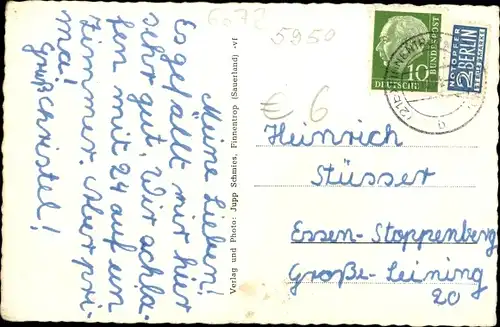 Meine Lieben!
Es gefällt mir hier
sehr gut. Wir schla-
fen mit 24 auf un
Zimmer. Aber pri-
ma!
Gruß Christel!
Verlag und Photo: Jupp Schmies, Finnentrop (Sauerland) -vf
6672
5950
€ 6
10
DEUTSCHE
BUNDESPOST
NOTOPFER
2 BERLIN
STEUERMARKE
Heinrich
Stüsser
Essen-Stoppenberg
Große-Leining
20